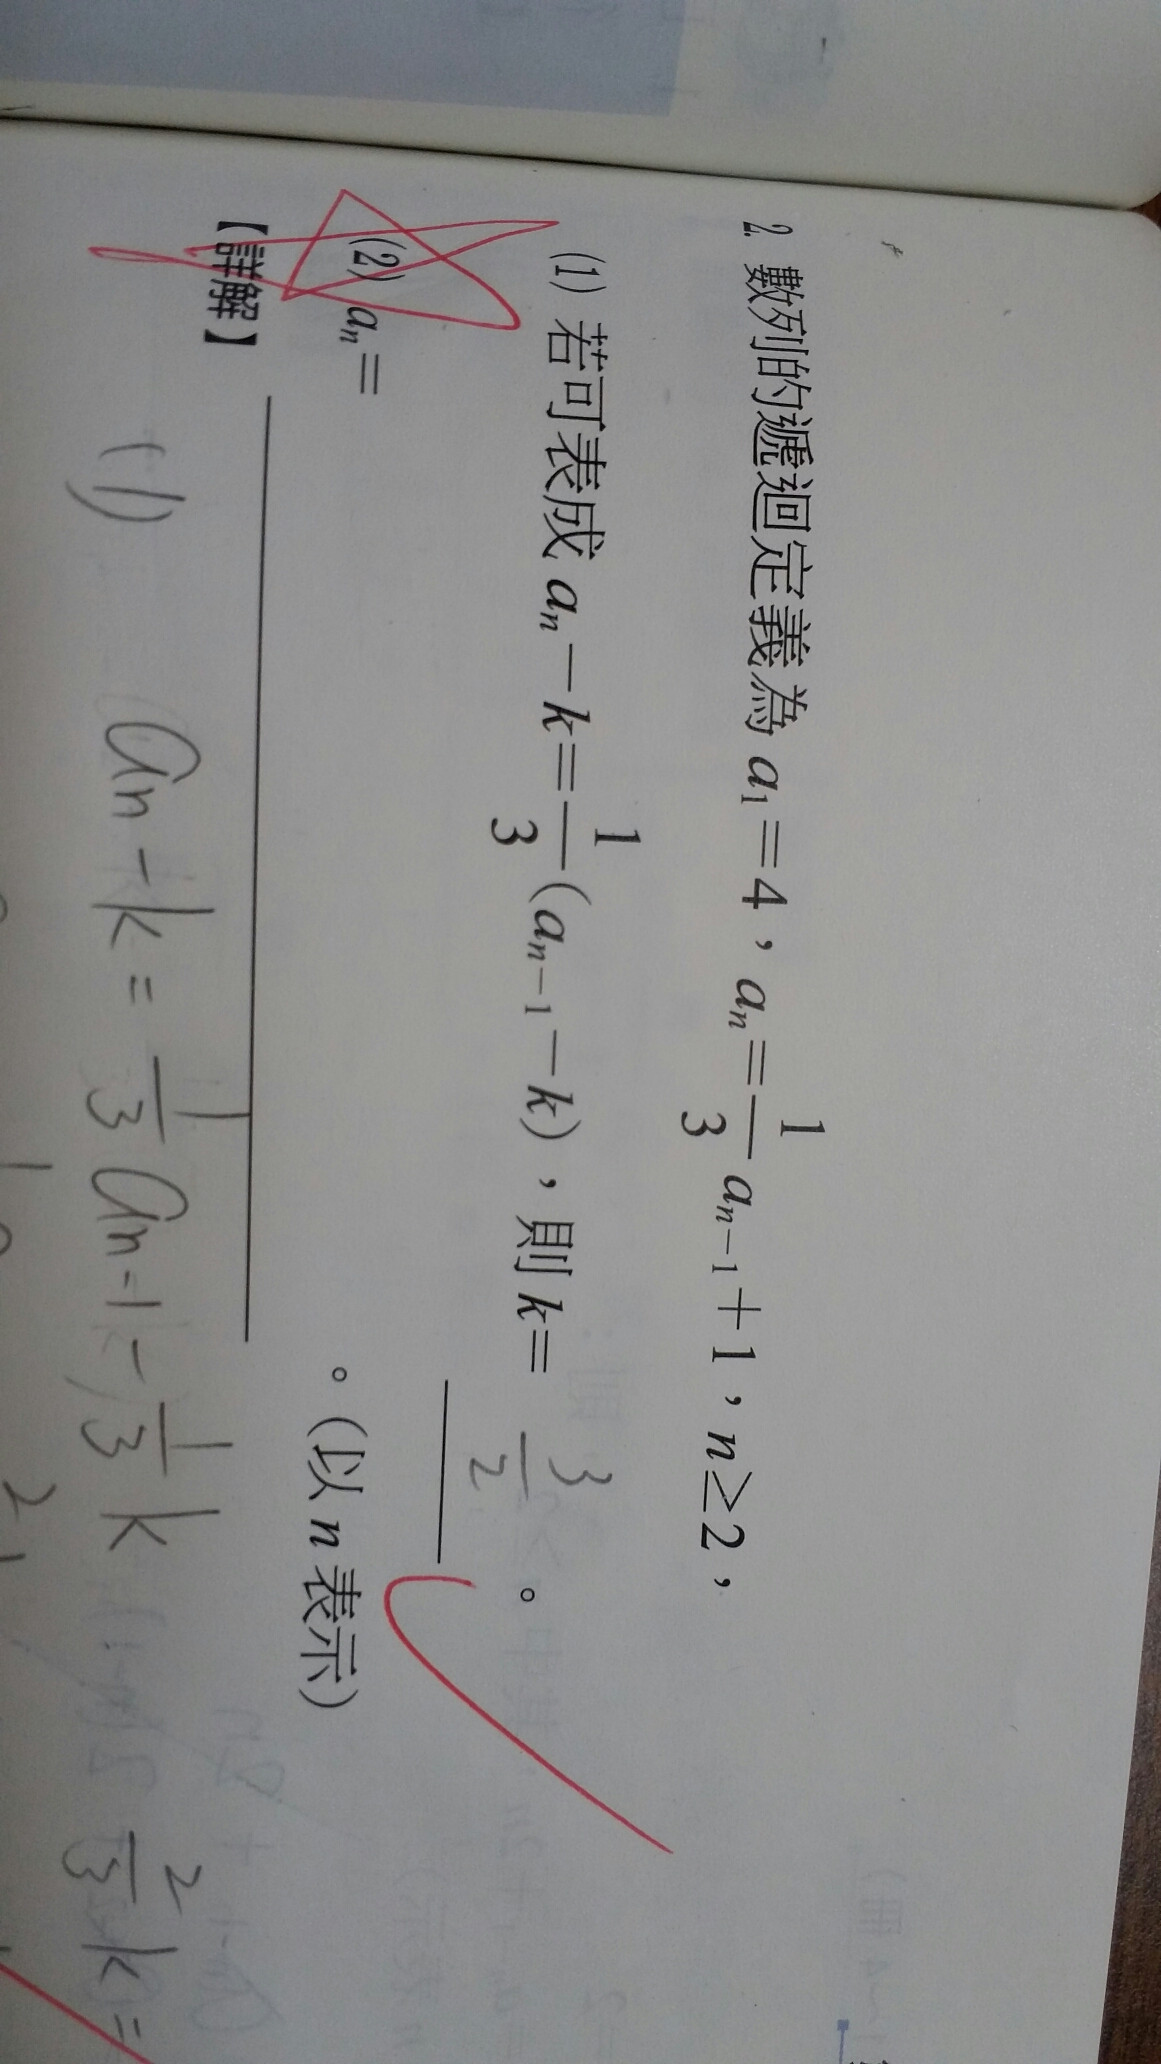 2. 數列的遞迴定義為 a₁=4，aₙ=1/3 aₙ₋₁+1，n≥2，
(1) 若可表成 aₙ－k=1/3(aₙ₋₁－k)，則 k= 3/2 。
(2) aₙ= 。(以 n 表示)
【詳解】
(1) aₙ－k = 1/3 aₙ₋₁ － 1/3 k
2/3 k =